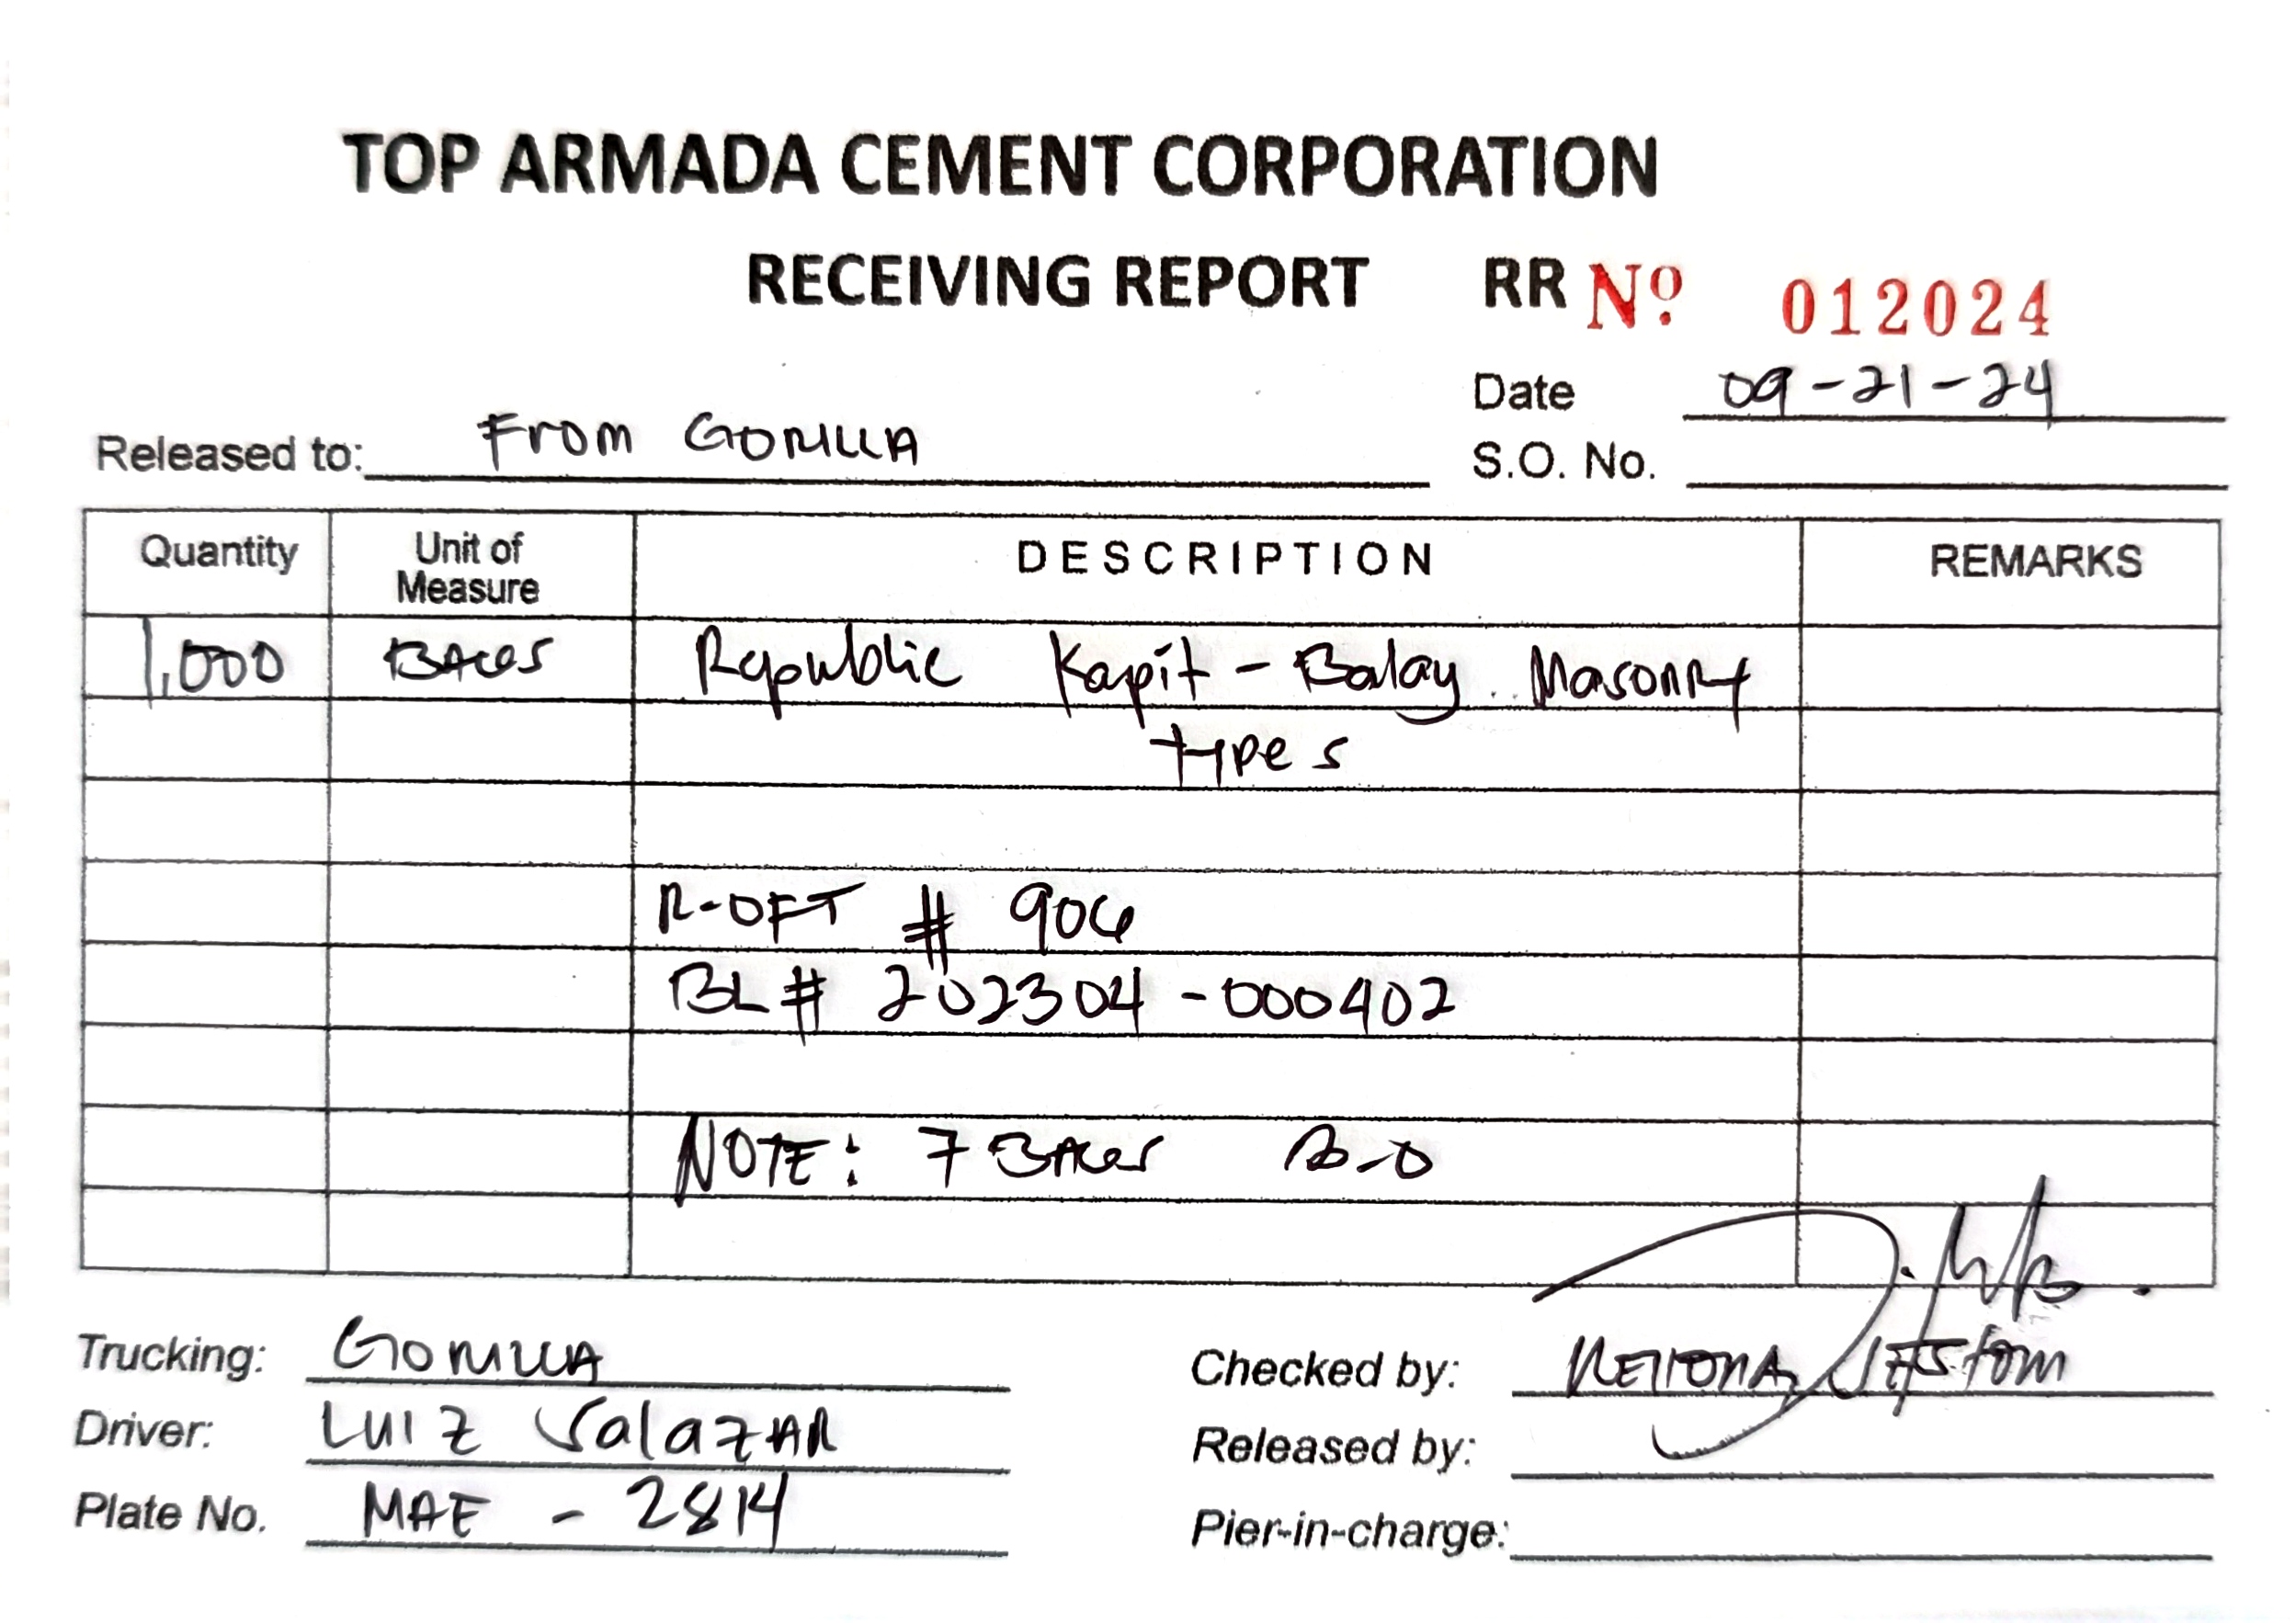 TOP ARMADA CEMENT CORPORATION
RECEIVING REPORT RR Nº 012024
Date 09-21-24
Released to: From GORILLA
S.O. No.
Quantity Unit of Measure DESCRIPTION REMARKS
1,000 BAGS Republic Kapit-Balay Masonry
type s
R-OFT # 906
BL# 202304-000402
NOTE: 7 BAGS B-O
Trucking: GORILLA
Checked by:
Driver: LUIZ SalazAR
Released by:
Plate No. MAE - 2814
Pier-in-charge: